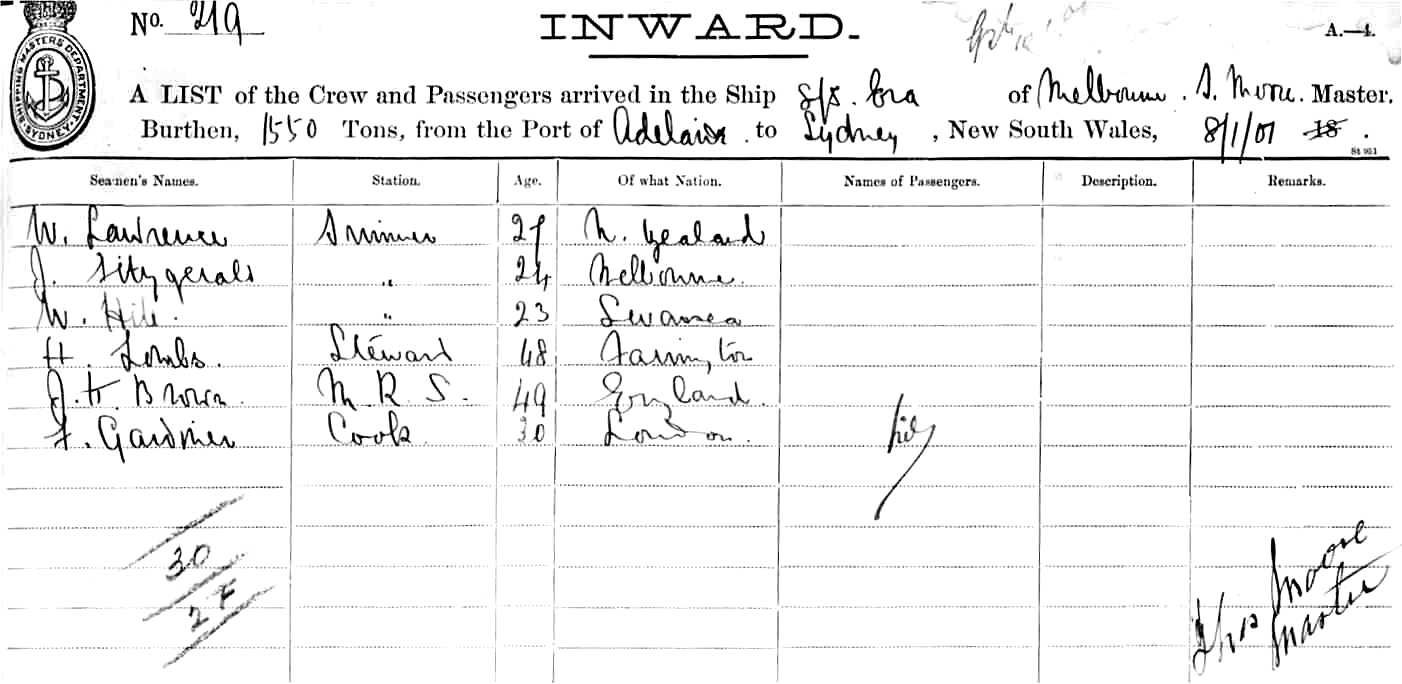 No. 219 INWARD. A.—4.
SHIPPING MASTERS DEPARTMENT SYDNEY
A LIST of the Crew and Passengers arrived in the Ship S/S. Era of Melbourne. T. Moore. Master,
Burthen, 1550 Tons, from the Port of Adelaide to Sydney, New South Wales, 8/1/01 18 .
St 951
Seamen's Names. Station. Age. Of what Nation. Names of Passengers. Description. Remarks.
W. Lawrence Trimmer 27 N. Zealand
J. Fitzgerald " 24 Melbourne.
W. Hill. " 23 Swansea
H. Lombs. Steward 48
J. H. Brown. M. R. S. 49 England.
F. Gardner Cook. 30 London. Nil
30
2 F
Thos Moore
Master